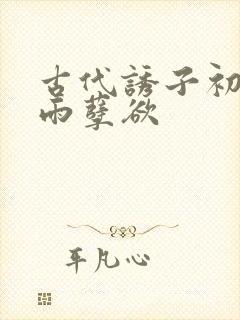 古代誘子初
雨孽欲
平凡心